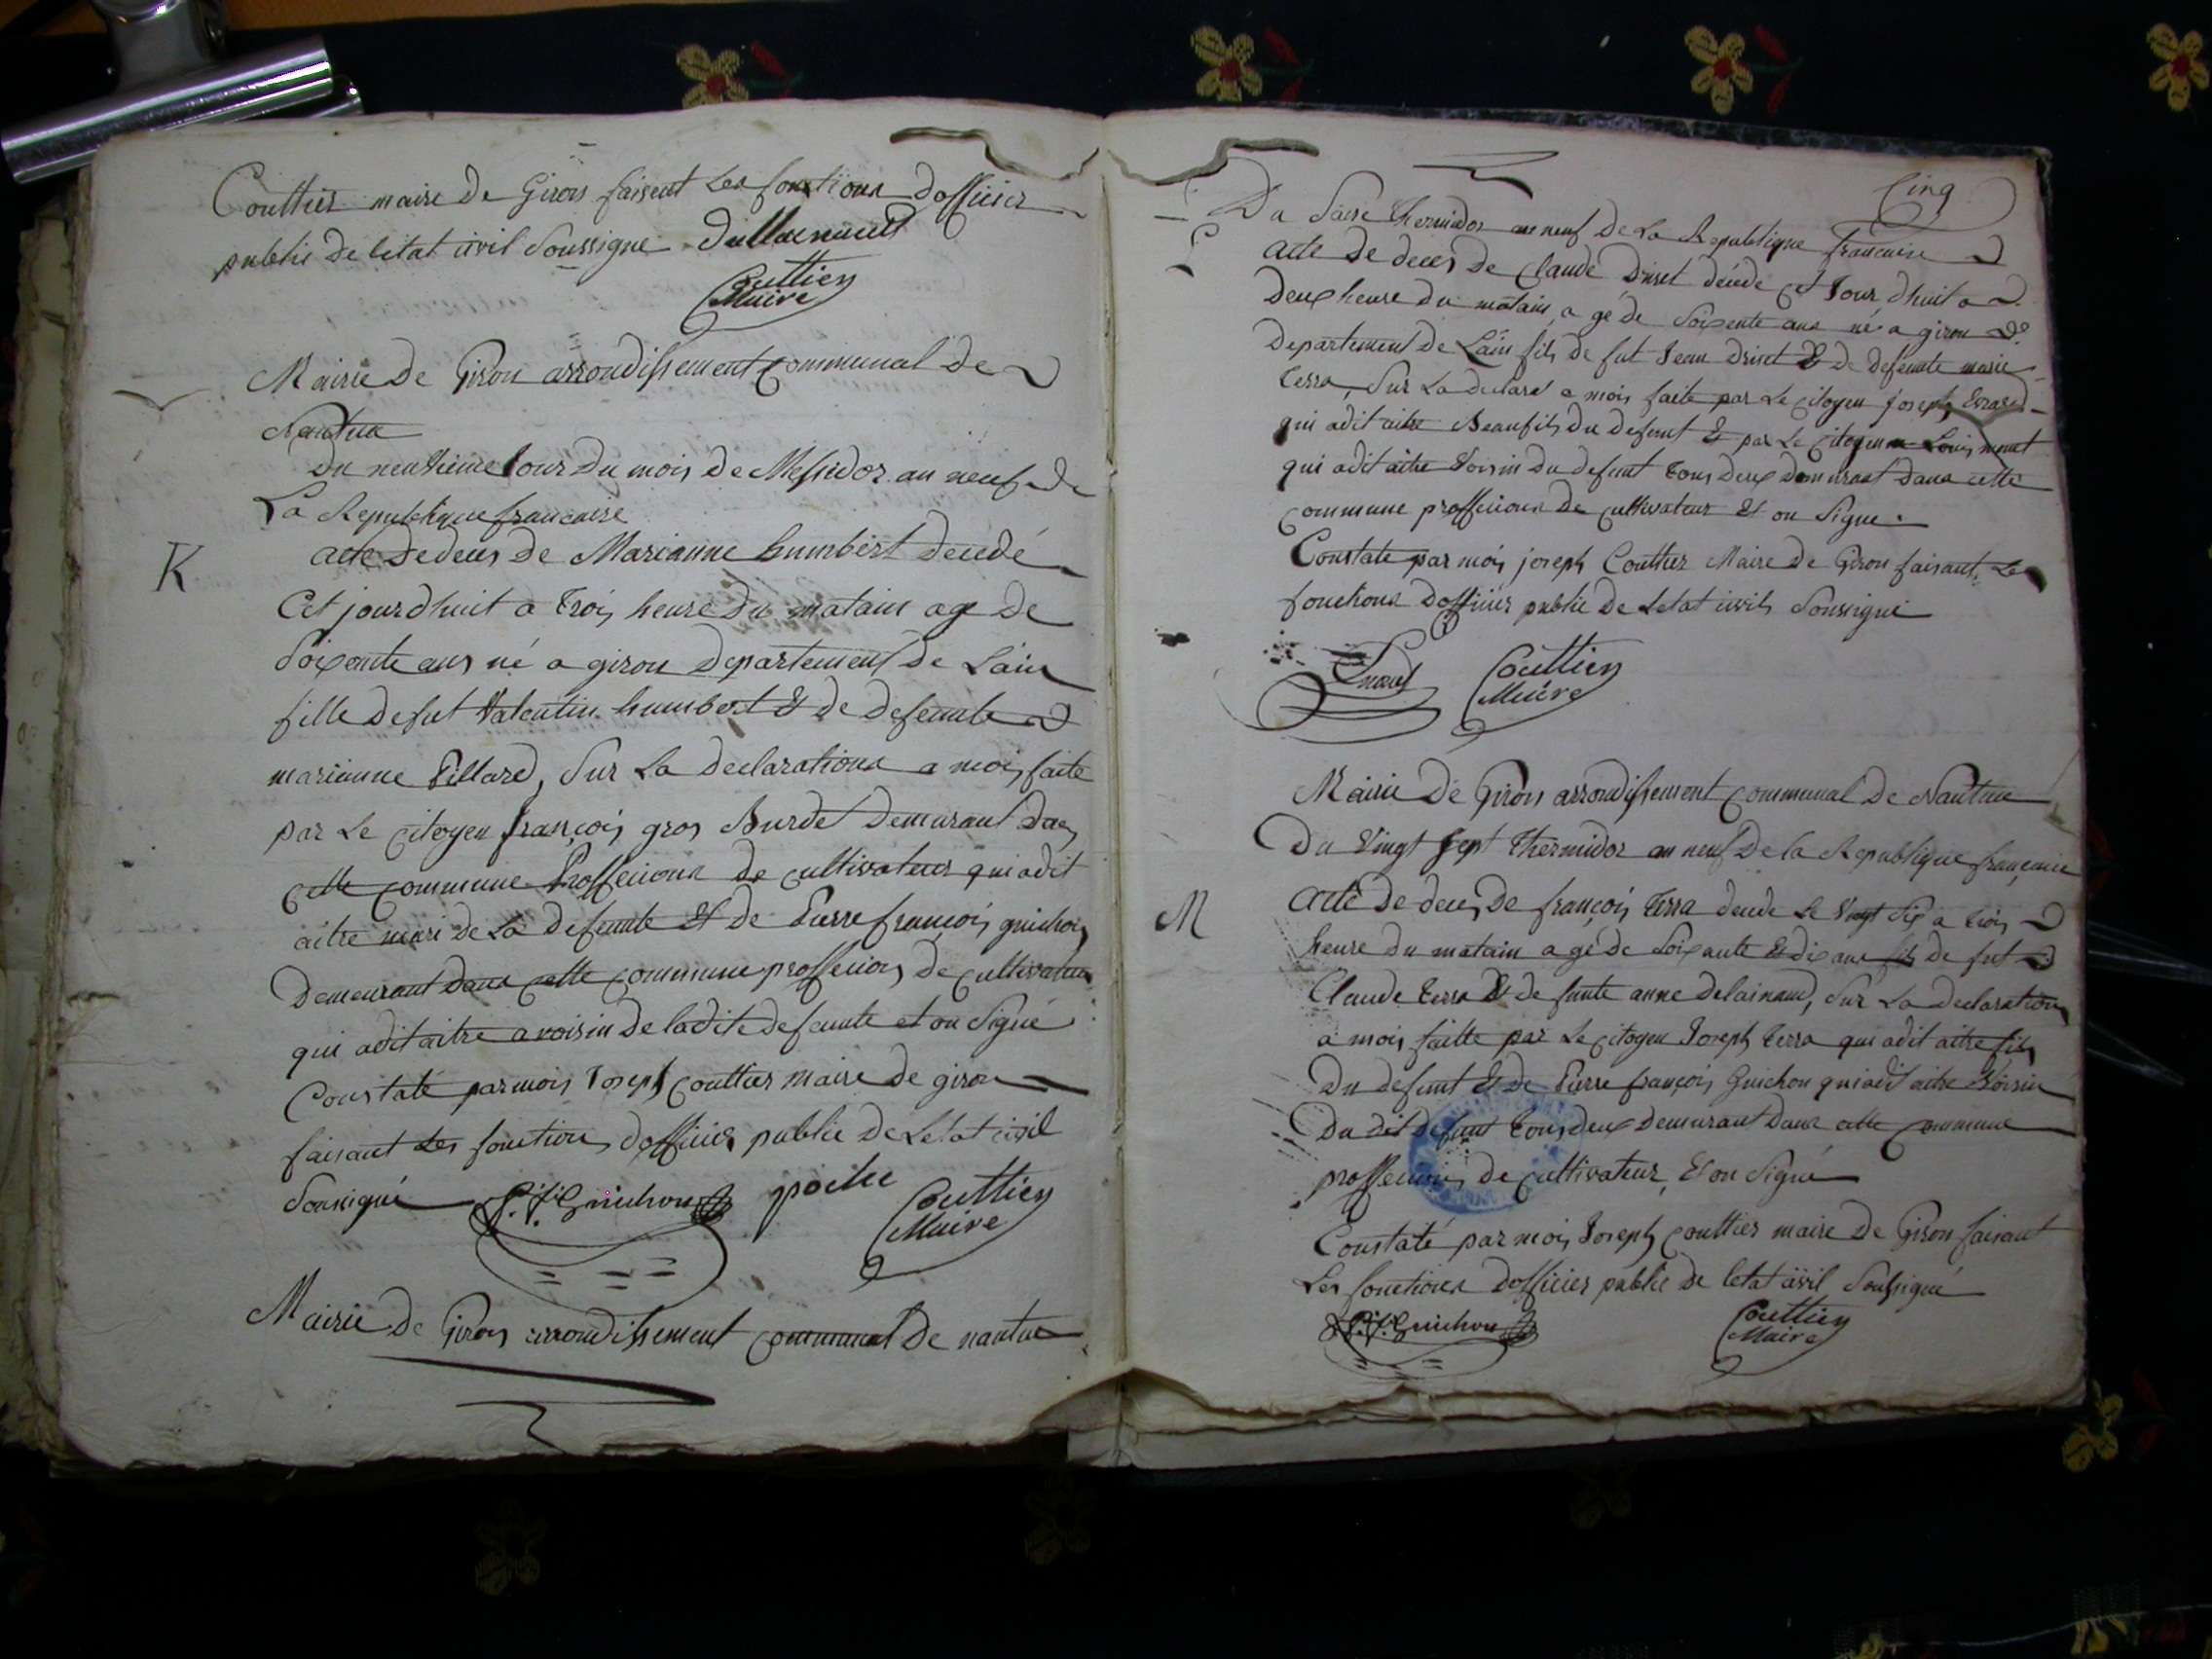 Couttier maire de Giron faisent Les fonctions dofficier
publie de letat civil Soussigne
Couttier
Maire
Mairie de Giron arrondissement Communal de
Nantua
du neuvieme Jour du mois de Messidor an neuf de
La Republique francaise
K
acte de deces de Marianne humbert decedé
Cet jourdhuit a trois heure du matain age de
Soixente ans né a giron departement de Lain
fille defut Valentin humbert & de defeunte
marianne Villard, Sur La declarations a mois faite
par Le Citoyen françois gros Burdet demurant dans
cette commune Proffecions de cultivateur qui adit
aitre mari de La defeunte & de Pierre françois guichon
demeurant dans cette commune proffecions de cultivateur
qui adit aitre a voisin de ladite defeunte et on Signé
Constaté par mois Joseph Couttier Maire de giron
faisant Les fonctions dofficier publie de Letat civil
Soussigné P. f. Guichon poche Couttier
Maire
Mairie de Giron arrondissement communal de nantua
Cinq
L
Du Saise thermidor an neuf de La Republique francaise
acte de deces de Claude Driset décédé cet Jour dhuit a
deux heure du matain a gé de Soixente ans né a giron
departement de Lain fils de fut Jean Driset & de defeunte marie
terra, Sur La declarat a mois faite par Le Citoyen Joseph Evrard
qui adit aitre Beaufils du defeunt & par Le Citoyen Louis
qui adit aitre Voisin du defunt tous deux demurant dans cette
commune proffecions de cultivateur & on Signe
Constate par mois joseph Couttier Maire de Giron faisant Les
fonctions dofficier publie de Letat civils Soussigné
Couttier
Maire
Mairie de Giron arrondissement Communal de Nantua
Du Vingt Sept thermidor an neuf de la Republique françaice
M
acte de deces de françois terra decede Le Vingt Six a trois
heure du matain a gé de Soixante & dix ans fils de fut
Claude terra & de funte anne delainaud, Sur La declaration
a mois faitte par Le Citoyen Joseph terra qui adit aitre fils
Du defunt & de Pierre françois Guichon qui adit aitre Voisin
Du dit defunt tous deux demurant dans cette Commune
proffecions de cultivateur, & on Signé
Constaté par mois Joseph Couttier maire de Giron faisant
Les fonctions dofficier publie de letat civil Soussigné
P. f. Guichon Couttier
Maire